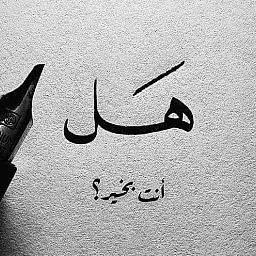 هَل
أنت بخير؟